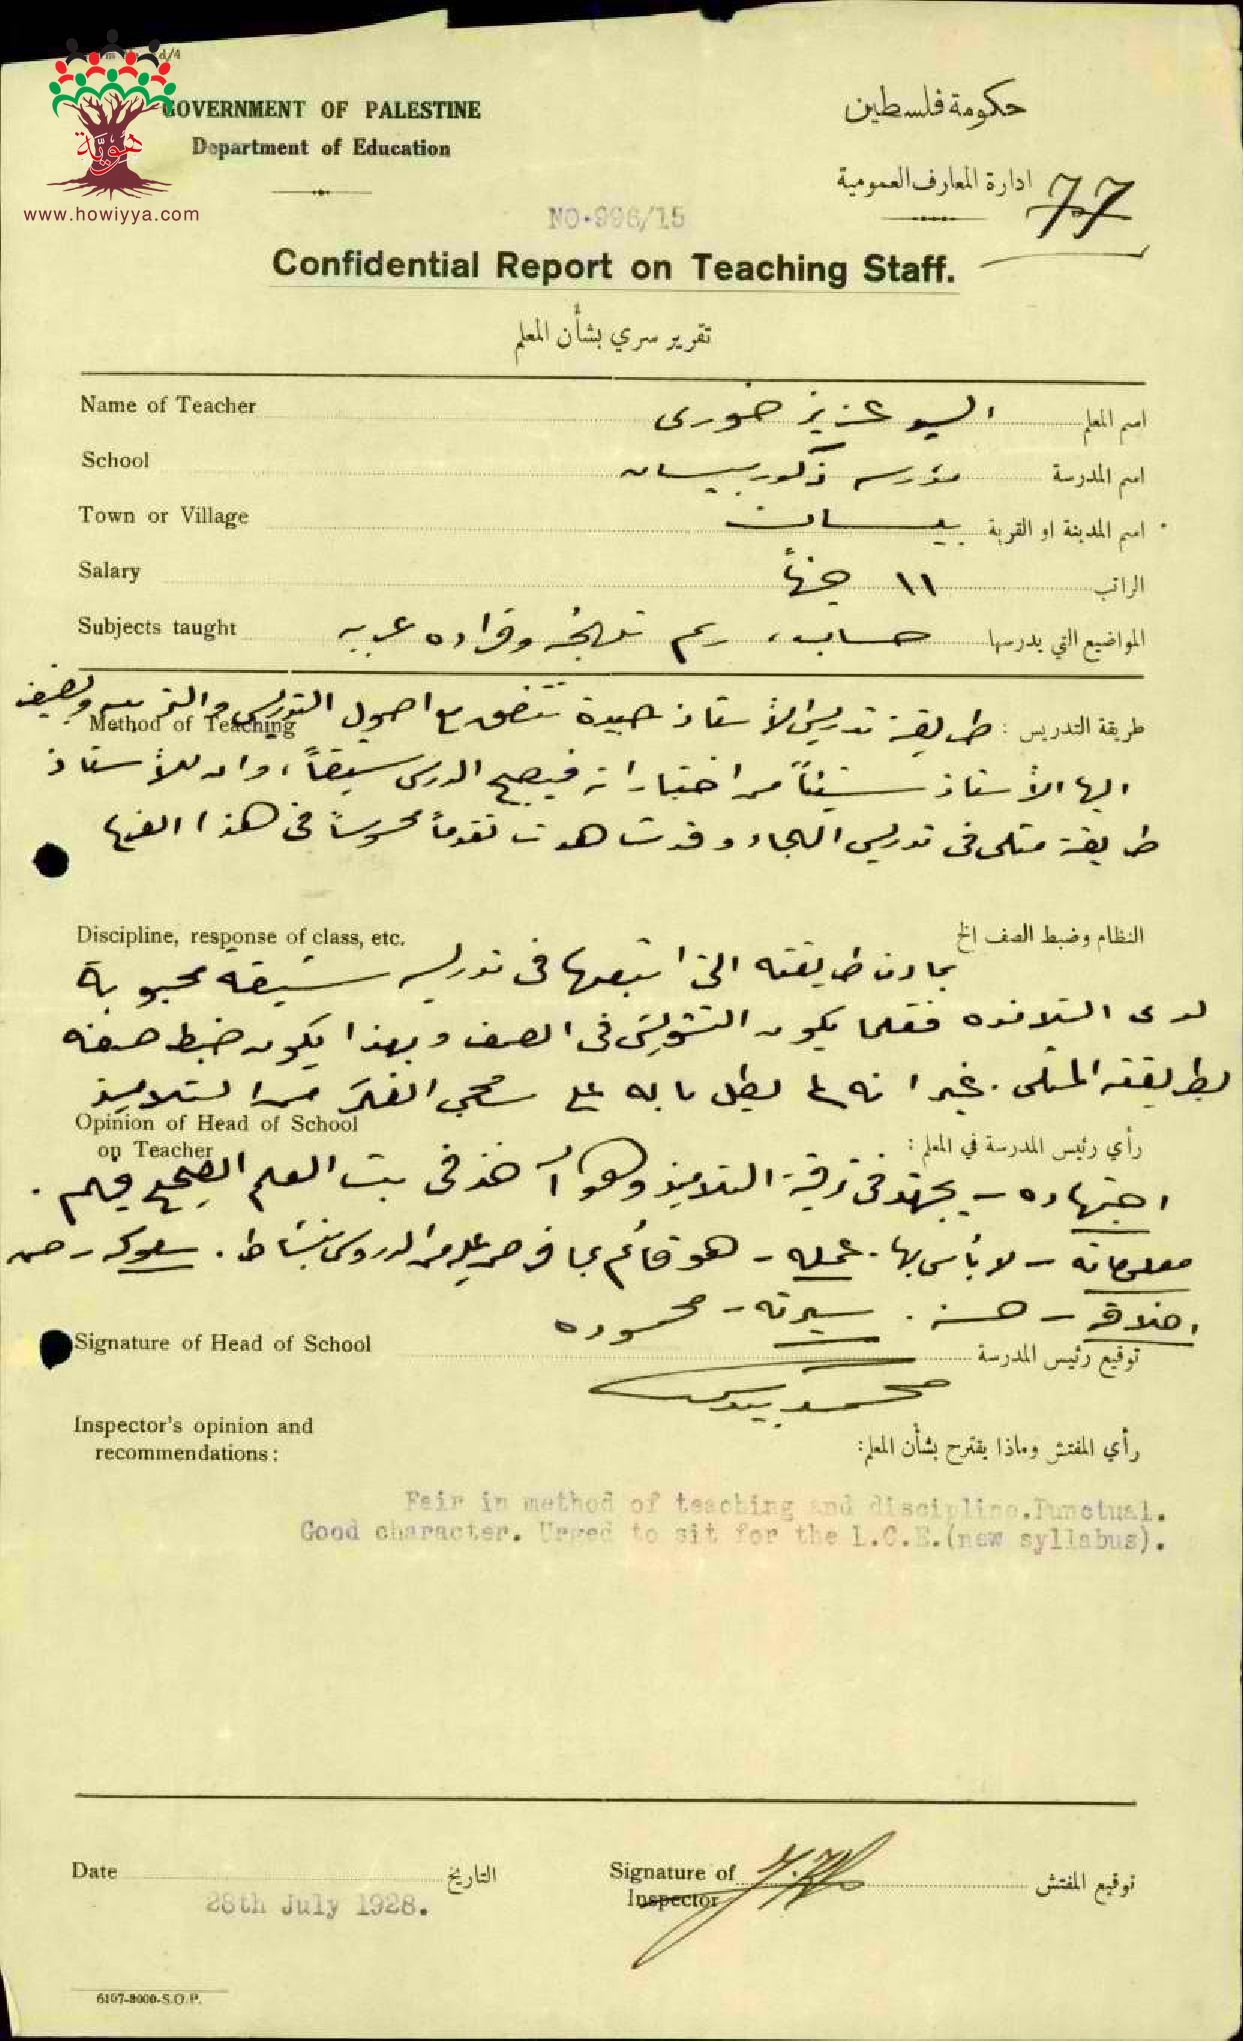 d/4
GOVERNMENT OF PALESTINE
حكومة فلسطين
Department of Education
ادارة المعارف العمومية
77
هوية
www.howiyya.com
NO.996/15
Confidential Report on Teaching Staff.
تقرير سري بشأن المعلم
Name of Teacher السيد عزيز خوري اسم المعلم
School مدرسة ذكور بيسان اسم المدرسة
Town or Village بيسان اسم المدينة او القرية
Salary ١١ جنيهاً الراتب
Subjects taught حساب، رسم وقراءه عربيه المواضيع التي يدرسها
Method of Teaching
طريقة التدريس : طريقة تدريس الأستاذ جيدة تتفق مع اصول التدريس والتربية ويضيف
اليها الأستاذ شيئاً من اختباراته فيصبح الدرس شيقاً، وان للأستاذ
طريقة مثلى في تدريس الهجاء وقد شاهدت تقدماً محسوساً في هذا الفرع
Discipline, response of class, etc.
النظام وضبط الصف الخ
بما ان طريقته التي اتبعها في تدريسه شيقة محبوبة
لدى التلامذه فقلما يكون التشويش في الصف وبهذا يكون ضبط صفه
بطريقته المثلى. غير انه يطيل باله على من التلاميذ
Opinion of Head of School
on Teacher
رأي رئيس المدرسة في المعلم :
اجتهاده - يجتهد في ترقية التلاميذ وهو آخذ في بث العلم الصحيح فيهم .
معلوماته - لا بأس بها . عمله - هو قائم بما فرض عليه من الدروس بنشاط . سلوكه - حسن
اخلاقه - حسنة . سيرته - محموده
Signature of Head of School توقيع رئيس المدرسة
محمد
Inspector's opinion and
recommendations :
رأي المفتش وماذا يقترح بشأن المعلم:
Fair in method of teaching and discipline. Punctual.
Good character. Urged to sit for the L.C.E.(new syllabus).
Date التاريخ
28th July 1928.
Signature of
Inspector
توقيع المفتش
6107-8000-S.O.P.